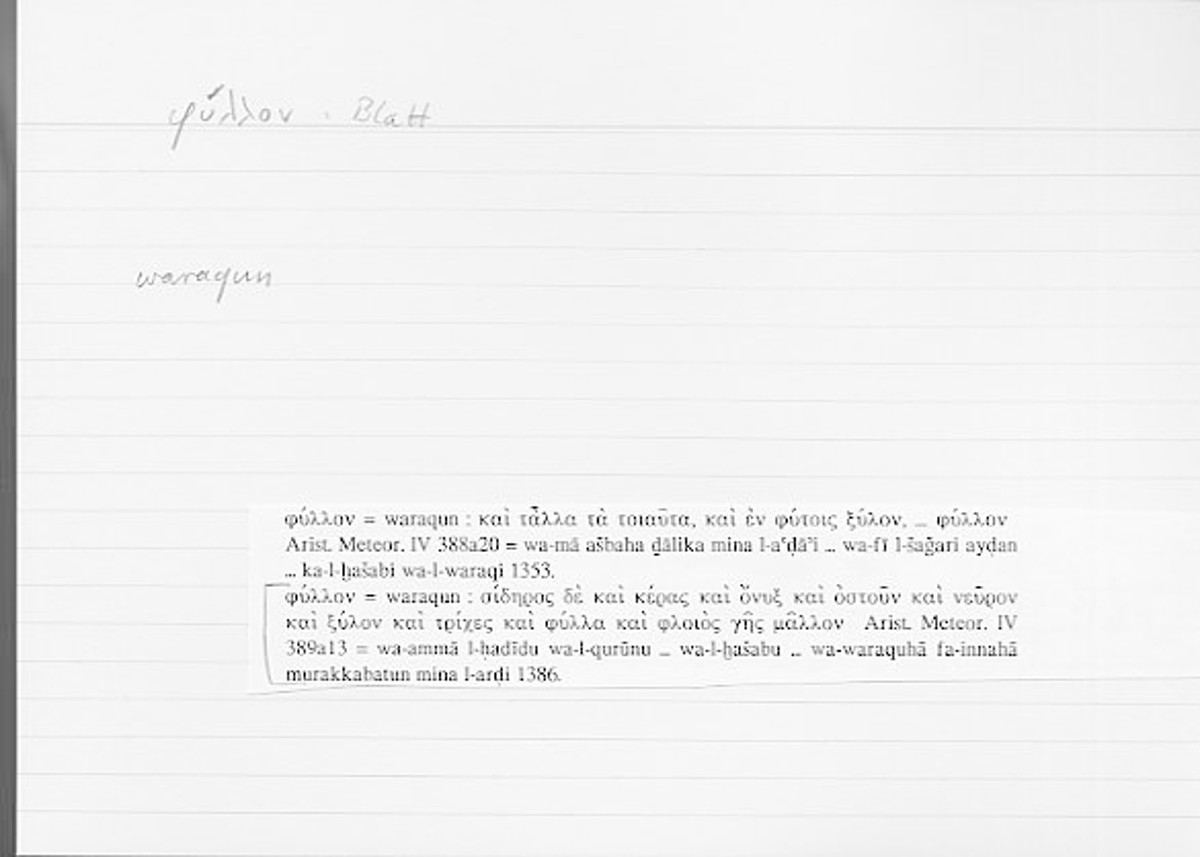 φύλλον . Blatt
waraqun
φύλλον = waraqun : καὶ τἆλλα τὰ τοιαῦτα, καὶ ἐν φύτοις ξύλον, ... φύλλον
Arist. Meteor. IV 388a20 = wa-mā ašbaha ḏālika mina l-aʿḍāʾi ... wa-fī l-šaǧari ayḍan
... ka-l-ḫašabi wa-l-waraqi 1353.
φύλλον = waraqun : σίδηρος δὲ καὶ κέρας καὶ ὄνυξ καὶ ὀστοῦν καὶ νεῦρον
καὶ ξύλον καὶ τρίχες καὶ φύλλα καὶ φλοιὸς γῆς μᾶλλον Arist. Meteor. IV
389a13 = wa-ammā l-ḥadīdu wa-l-qurūnu ... wa-l-ḫašabu ... wa-waraquhā fa-innahā
murakkabatun mina l-arḍi 1386.